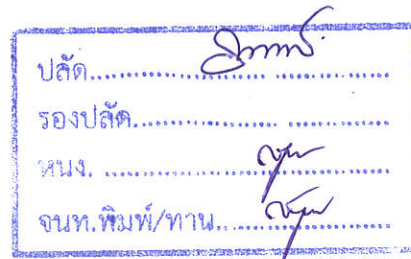 ปลัด....................................
รองปลัด................................
หนง. ....................................
จนท.พิมพ์/ทาน....................